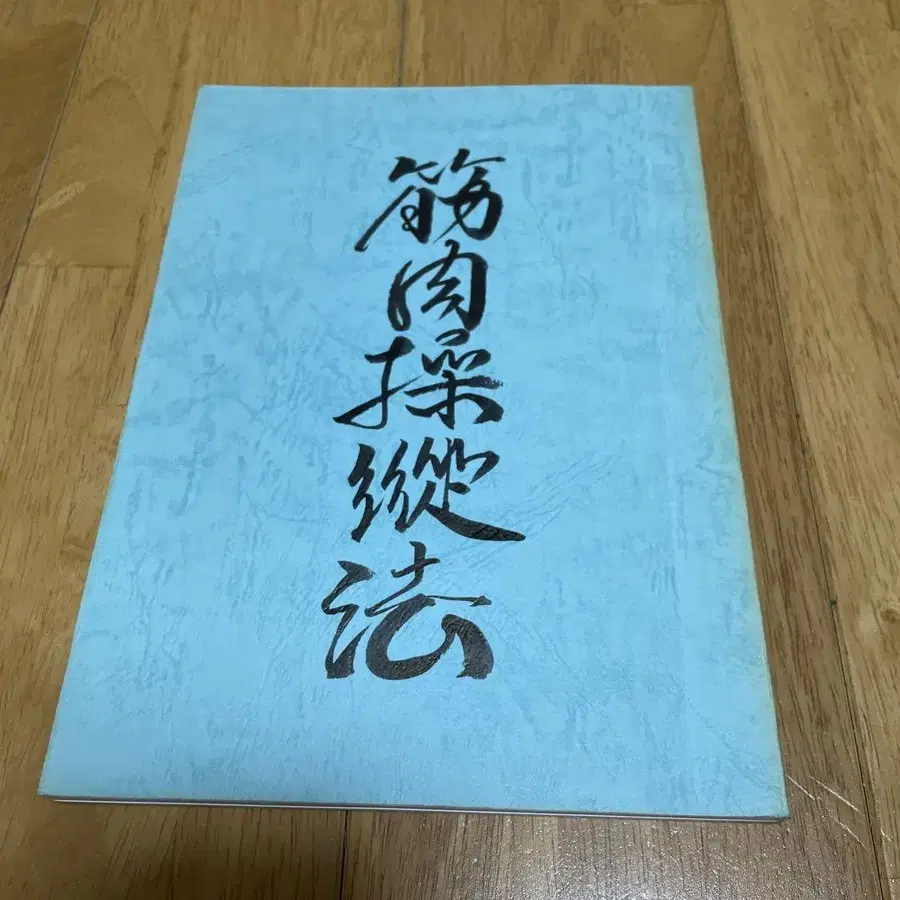 筋肉操縱法